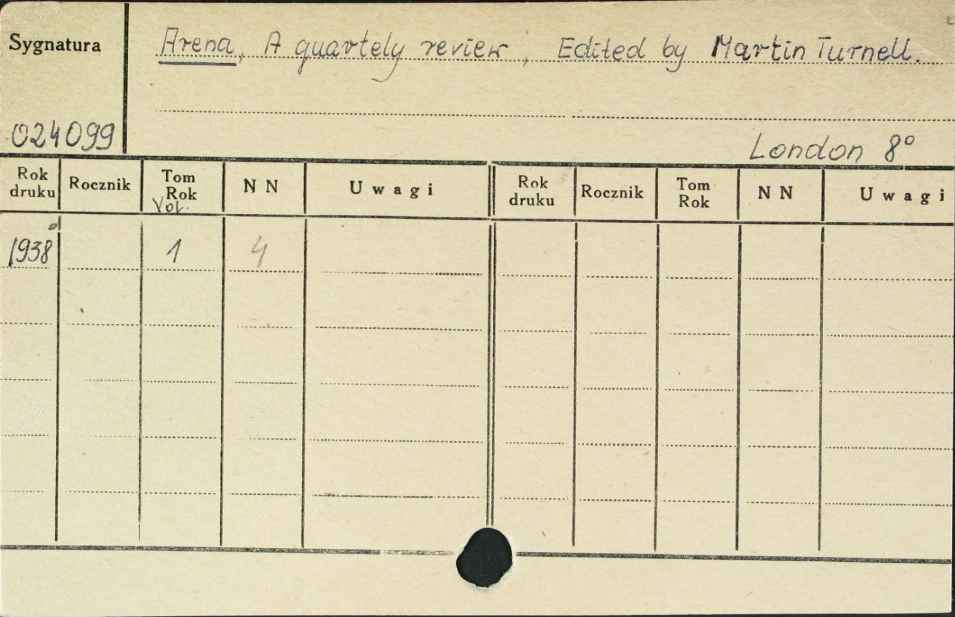 Sygnatura
Arena, A quartely review, Edited by Martin Turnell.
024099
London 8°
Rok druku Rocznik Tom Rok Vol. NN Uwagi Rok druku Rocznik Tom Rok NN Uwagi
1938 1 4